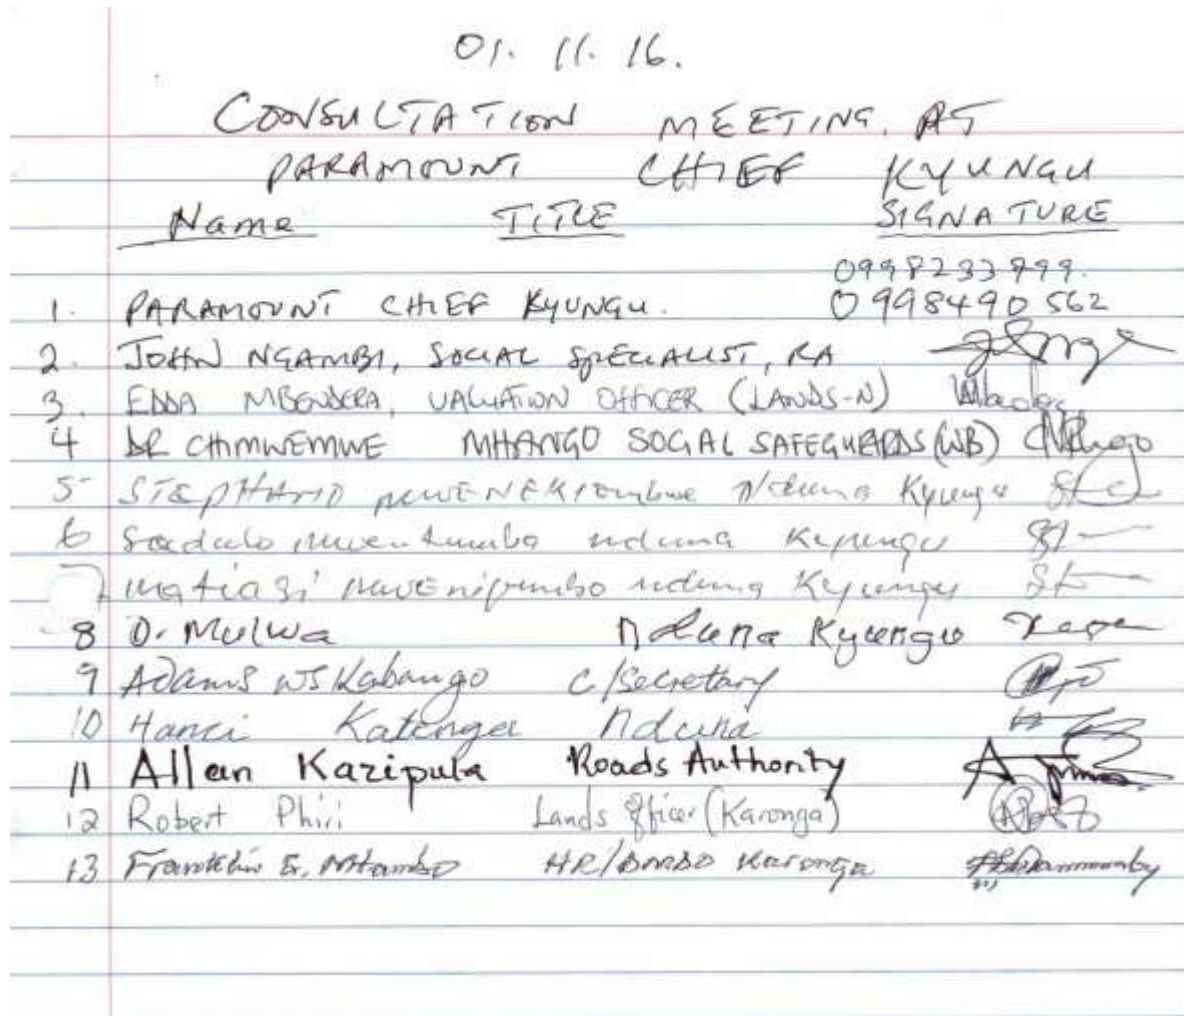 01. 11. 16.
CONSULTATION MEETING, AT
PARAMOUNT CHIEF KYUNGU
Name TITLE SIGNATURE
0998233899.
1. PARAMOUNT CHIEF KYUNGU. 0998490562
2. JOHN NGAMBI, SOCIAL SPECIALIST, RA
3. EDDA MBENDERA, VALUATION OFFICER (LANDS-N)
4 DR CHIMWEMWE MHANGO SOCIAL SAFEGUARDS (WB)
5 Nduna Kyungu
6 nduna Kyungu
7 nduna Kyungu
8 O. Mulwa Nduna Kyungu
9 Adams WS Kabango C/Secretary
10 Hanci Katenga Nduna
11 Allan Kazipula Roads Authority
12 Robert Phiri Lands Officer (Karonga)
13 Franklin Karonga